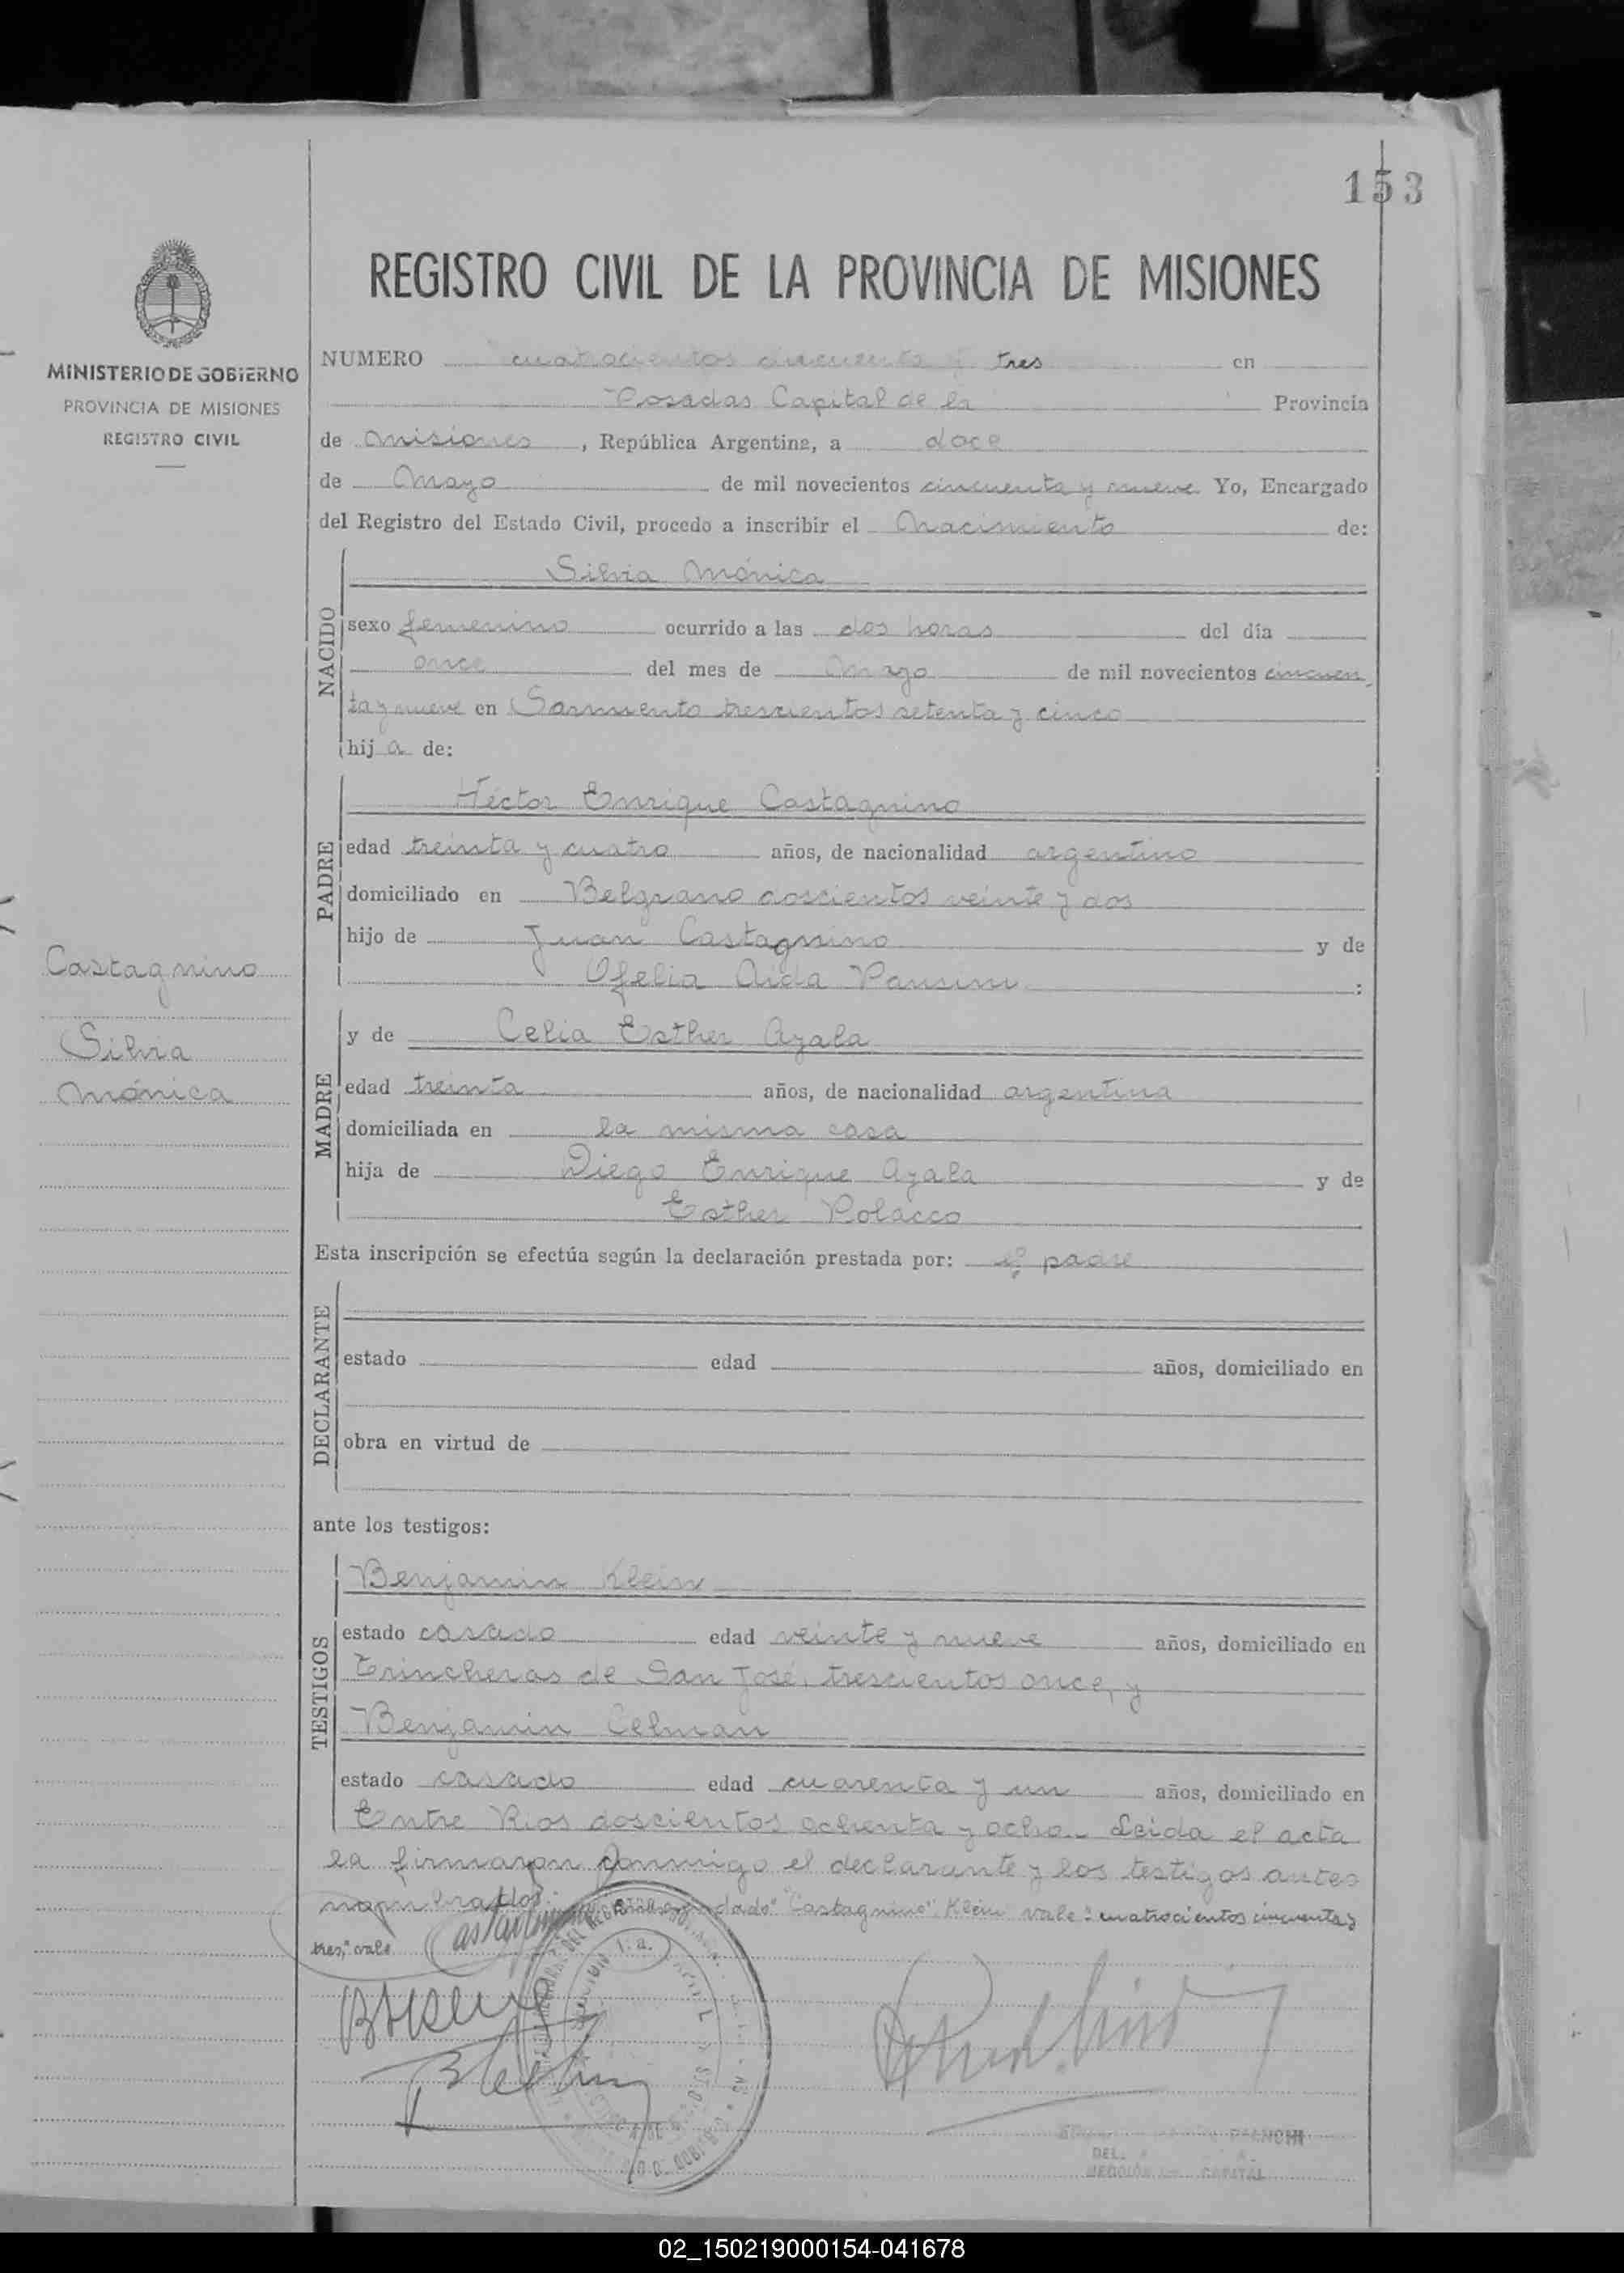 153
REGISTRO CIVIL DE LA PROVINCIA DE MISIONES
MINISTERIO DE GOBIERNO
PROVINCIA DE MISIONES
REGISTRO CIVIL
NUMERO cuatrocientos cincuenta y tres en
Posadas Capital de la Provincia
de Misiones, República Argentina, a doce
de Mayo de mil novecientos cincuenta y nueve Yo, Encargado
del Registro del Estado Civil, procedo a inscribir el Nacimiento de:
NACIDO
Silvia Mónica
sexo femenino ocurrido a las dos horas del día
once del mes de Mayo de mil novecientos cincuen
ta y nueve en Sarmiento trescientos setenta y cinco
hij a de:
PADRE
Héctor Enrique Castagnino
edad treinta y cuatro años, de nacionalidad argentino
domiciliado en Belgrano doscientos veinte y dos
hijo de Juan Castagnino y de
Ofelia Aida Pansini :
Castagnino
Silvia
Mónica
MADRE
y de Celia Esther Ayala
edad treinta años, de nacionalidad argentina
domiciliada en la misma casa
hija de Diego Enrique Ayala y de
Esther Polacco
Esta inscripción se efectúa según la declaración prestada por: el padre
DECLARANTE
estado edad años, domiciliado en
obra en virtud de
ante los testigos:
TESTIGOS
Benjamin Klein
estado casado edad veinte y nueve años, domiciliado en
Trincheras de San José, trescientos once, y
Benjamin Celman
estado casado edad cuarenta y un años, domiciliado en
Entre Rios doscientos ochenta y ocho.- Leida el acta
la firmaron conmigo el declarante y los testigos antes
nombrados.- "Castagnino". Klein vale: "cuatrocientos cincuenta y
tres," vale
DEL.
SECCIÓN CAPITAL
02_150219000154-041678